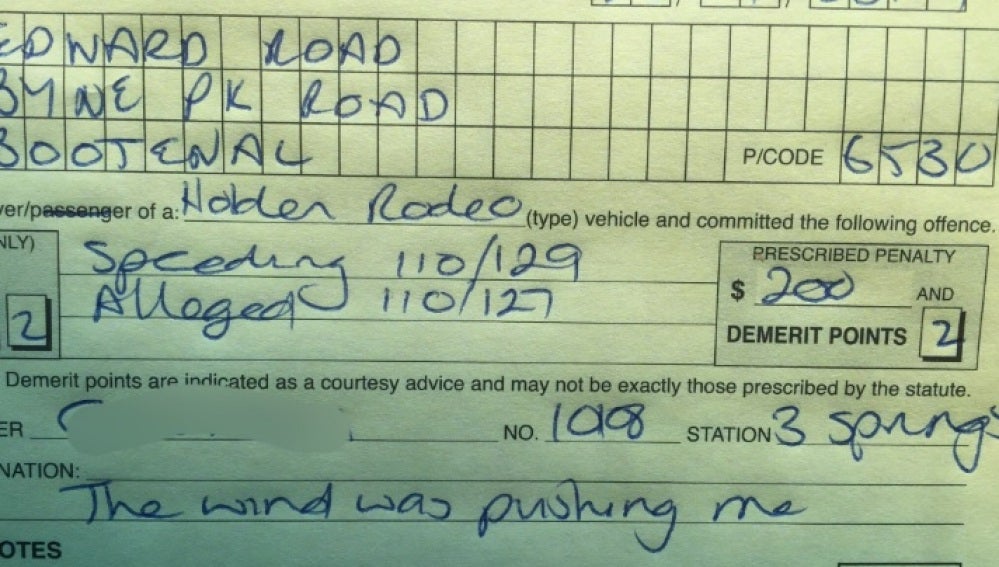 EDWARD ROAD
BYNE PK ROAD
BOOTENAL P/CODE 6530
ver/passenger of a: Holden Rodeo (type) vehicle and committed the following offence.
NLY) Speeding 110/129 PRESCRIBED PENALTY
Alleged 110/127 $ 200 AND
2 DEMERIT POINTS 2
Demerit points are indicated as a courtesy advice and may not be exactly those prescribed by the statute.
ER NO. STATION 3 Springs
NATION:
The wind was pushing me
OTES